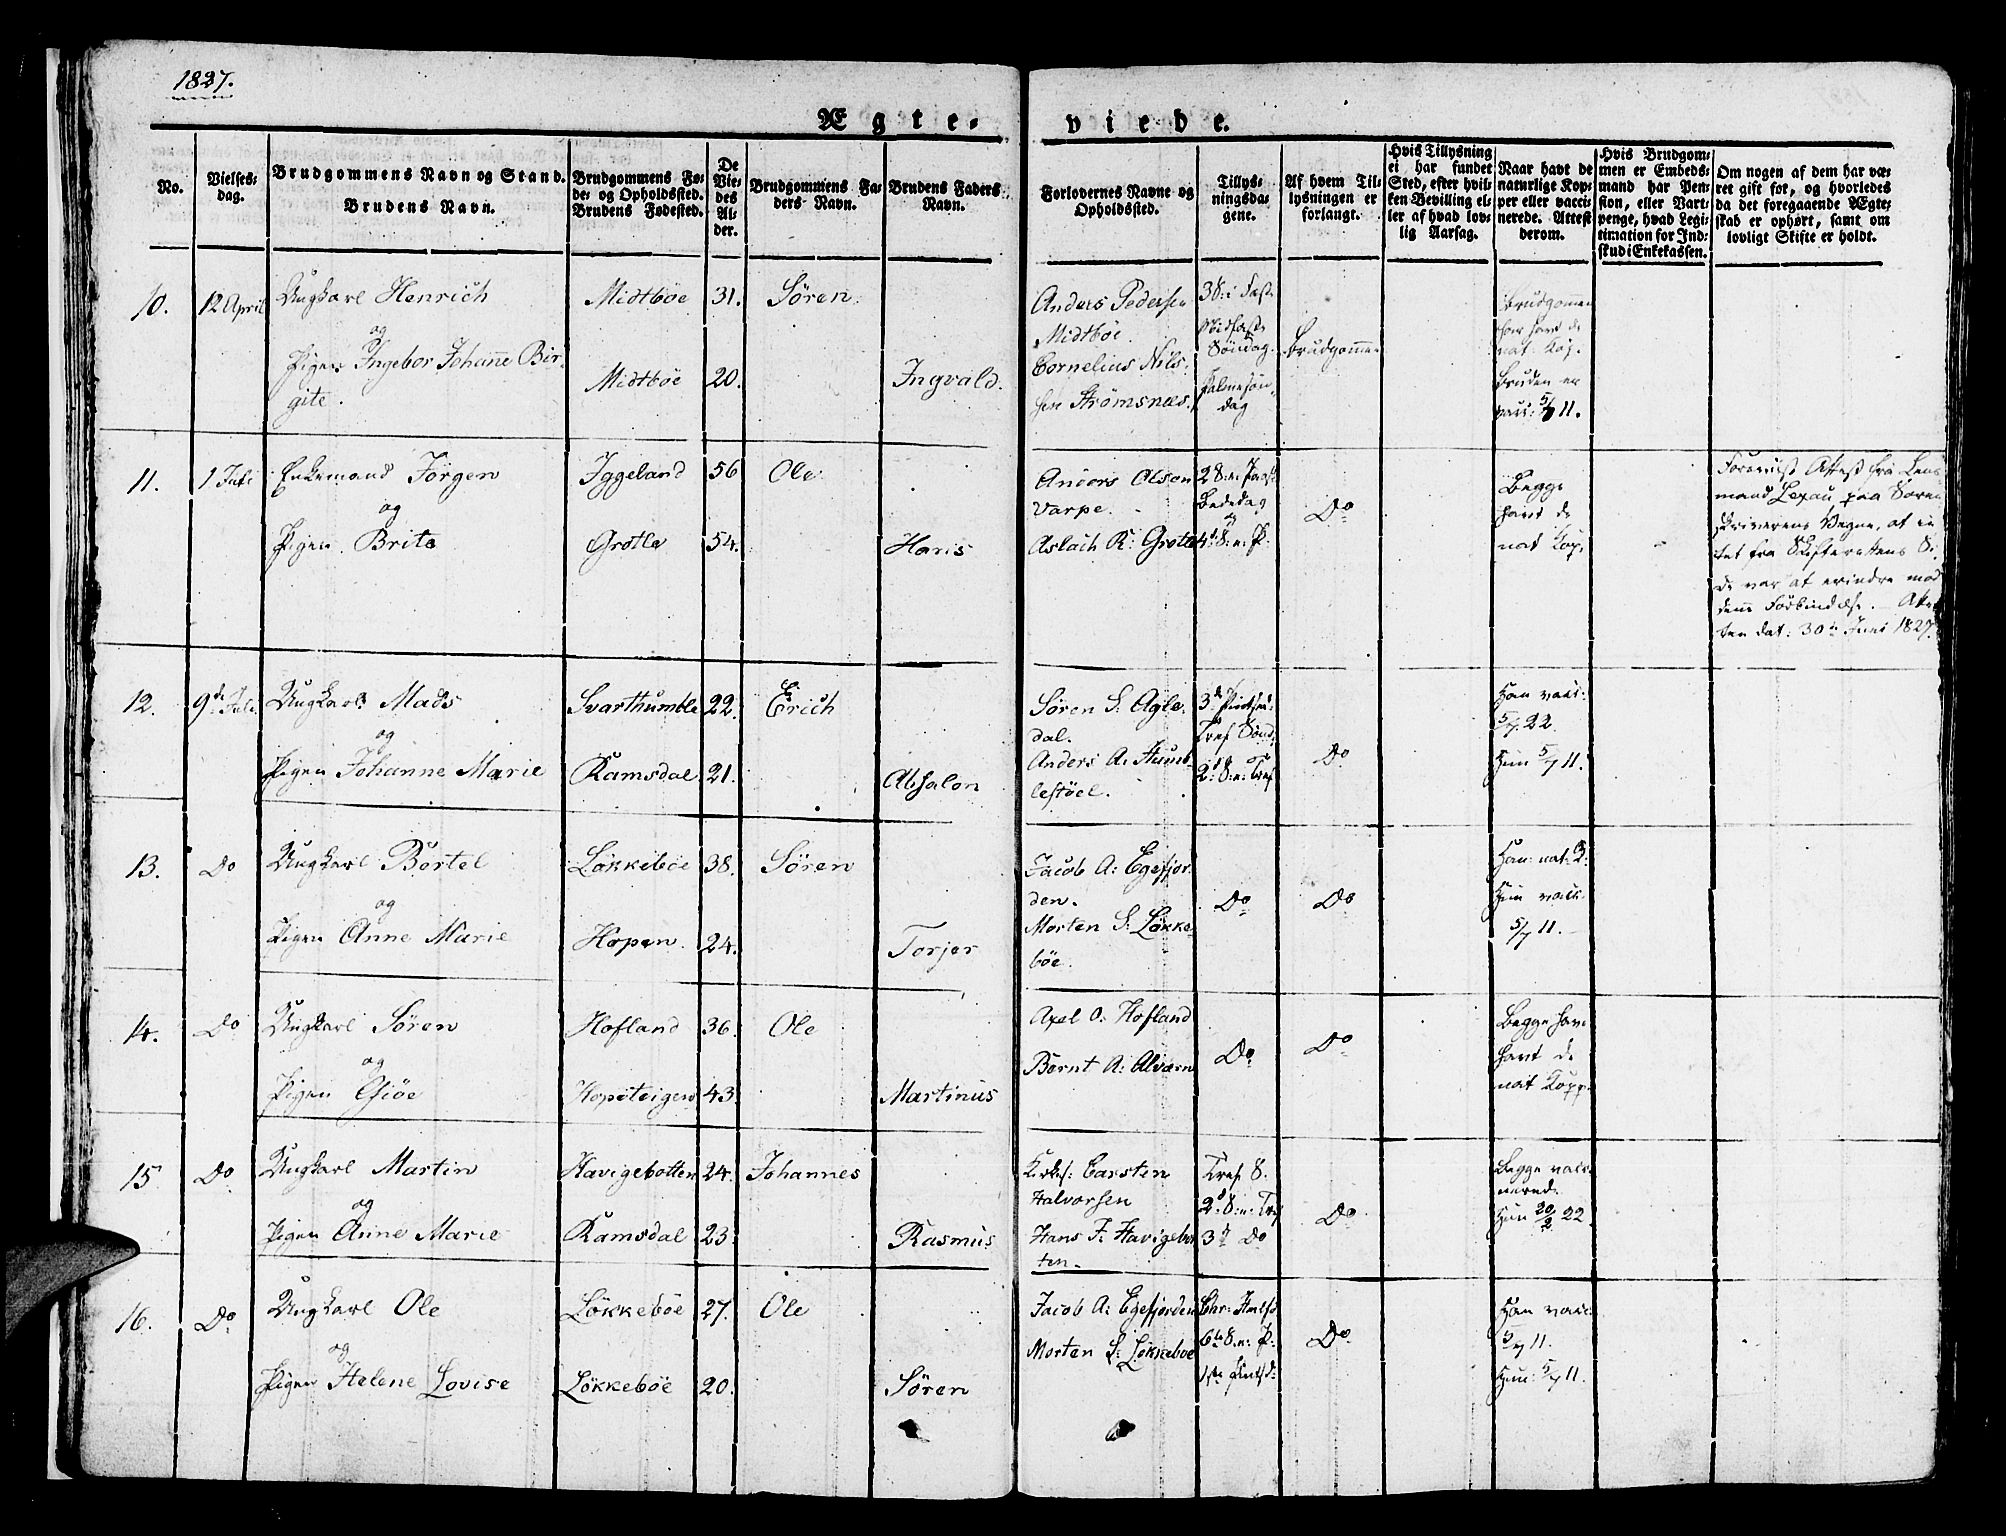 1827.
Ægte- viede.
No.
Vielses-
dag.
Brudgommens Navn og Stand.
Brudens Navn.
Brudgommens Fø-
de- og Opholdssted.
Brudens Fødested.
De
Vie-
des
Al-
der.
Brudgommens Fa-
ders Navn.
Brudens Faders
Navn.
Forlovernes Navne og
Opholdssted.
Tillys-
ningsda-
gene.
Af hvem Til-
lysningen er
forlangt.
Hvis Tillysning
ei har fundet
Sted, efter hvil-
ken Bevilling el-
ler af hvad lov-
lig Aarsag.
Naar havt de
naturlige Kop-
per eller vacci-
nerede. Attest
derom.
Hvis Brudgom-
men er Embeds-
mand har Pen-
sion, eller Vart-
penge, hvad Legi-
timation for Ind-
skud i Enkekassen.
Om nogen af dem har væ-
ret gift før, og hvorledes
da det foregaaende Ægte-
skab er ophørt, samt om
lovligt Skifte er holdt.
10. 12 April Ungkarl Henrich
og
Pigen Ingebor Johanne Bir-
gite.
Midtböe 31. Sören
Midtböe 20. Ingvald.
Anders Pedersen
Midtböe.
Cornelius Nils-
sen Strömsnees.
3 S: i Faste
Midfaste
Söndag.
Palmesön-
dag
Brudgommen
Brudgommen
har havt de
nat: Kop.
Bruden er
vacc: 5/7 11.
11. 1 Juli Enkemand Jörgen
og
Pigen Brite
Iggeland 56 Ole
Grotle 54. Haris
Anders Olson
Varpe.
Aslach R: Grotle
2 S: n: Paaske
Bededag
og
4d S: n: P:
Do
Begge
havt de
nat Kop.
Foreviist Attest fra Lens-
mand Lexau paa Soren-
skriverens Vegne, at in-
tet fra Skifterettens Si-
de var at erindre mod
denne Forbindelse. - Attes-
ten dat: 30te Juni 1827.
12. 9de Juli Ungkarl Mads
og
Pigen Johanne Marie
Svarthumble 22. Erich
Ramsdal 21. Absalon
Sören S: Agle-
dal.
Anders A: Humb-
lestöel.
3d Pintsed:
Tref Sönd.
og
2d S: n: Tref
Do
Han vacc:
5/7 22.
Hun 5/7 11.
13. Do Ungkarl Bertel
og
Pigen Anne Marie
Lökkeböe 38. Sören
Hopen. 24. Torjer
Jacob A: Egefjor-
den.
Morten S: Lökke-
böe.
Do
Do
Han: nat: K:
Hun vacc.
5/7 11.
14. Do Ungkarl Sören
og
Pigen Esiöe
Hofland 36. Ole
Hopsteigen 43. Martinus
Axel O: Hofland
Bernt A: Alværn
Do
Do
Begge har
havt de
nat Kopp.
15 Do Ungkarl Martin
og
Pigen Anne Marie
Havigebotten 24. Johannes
Ramsdal 23 Rasmus
Carsten
Halvorsen
Hans J: Havigebot-
ten.
Tref S.
2d S: n: Tref
3d Do
Do
Begge vacc-
nered.
Hun 20/2 22
16. Do Ungkarl Ole
og
Pigen Helene Lovise
Lökkeböe 27. Ole
Lökkeböe 20. Sören
Jacob A: Egefjorden
Morten S: Lökkeböe
Chr: Himlf:
6te S: n: P:
1ste Pintsd:
Do
Han vacc:
5/7 11.
Hun: 5/7 11.